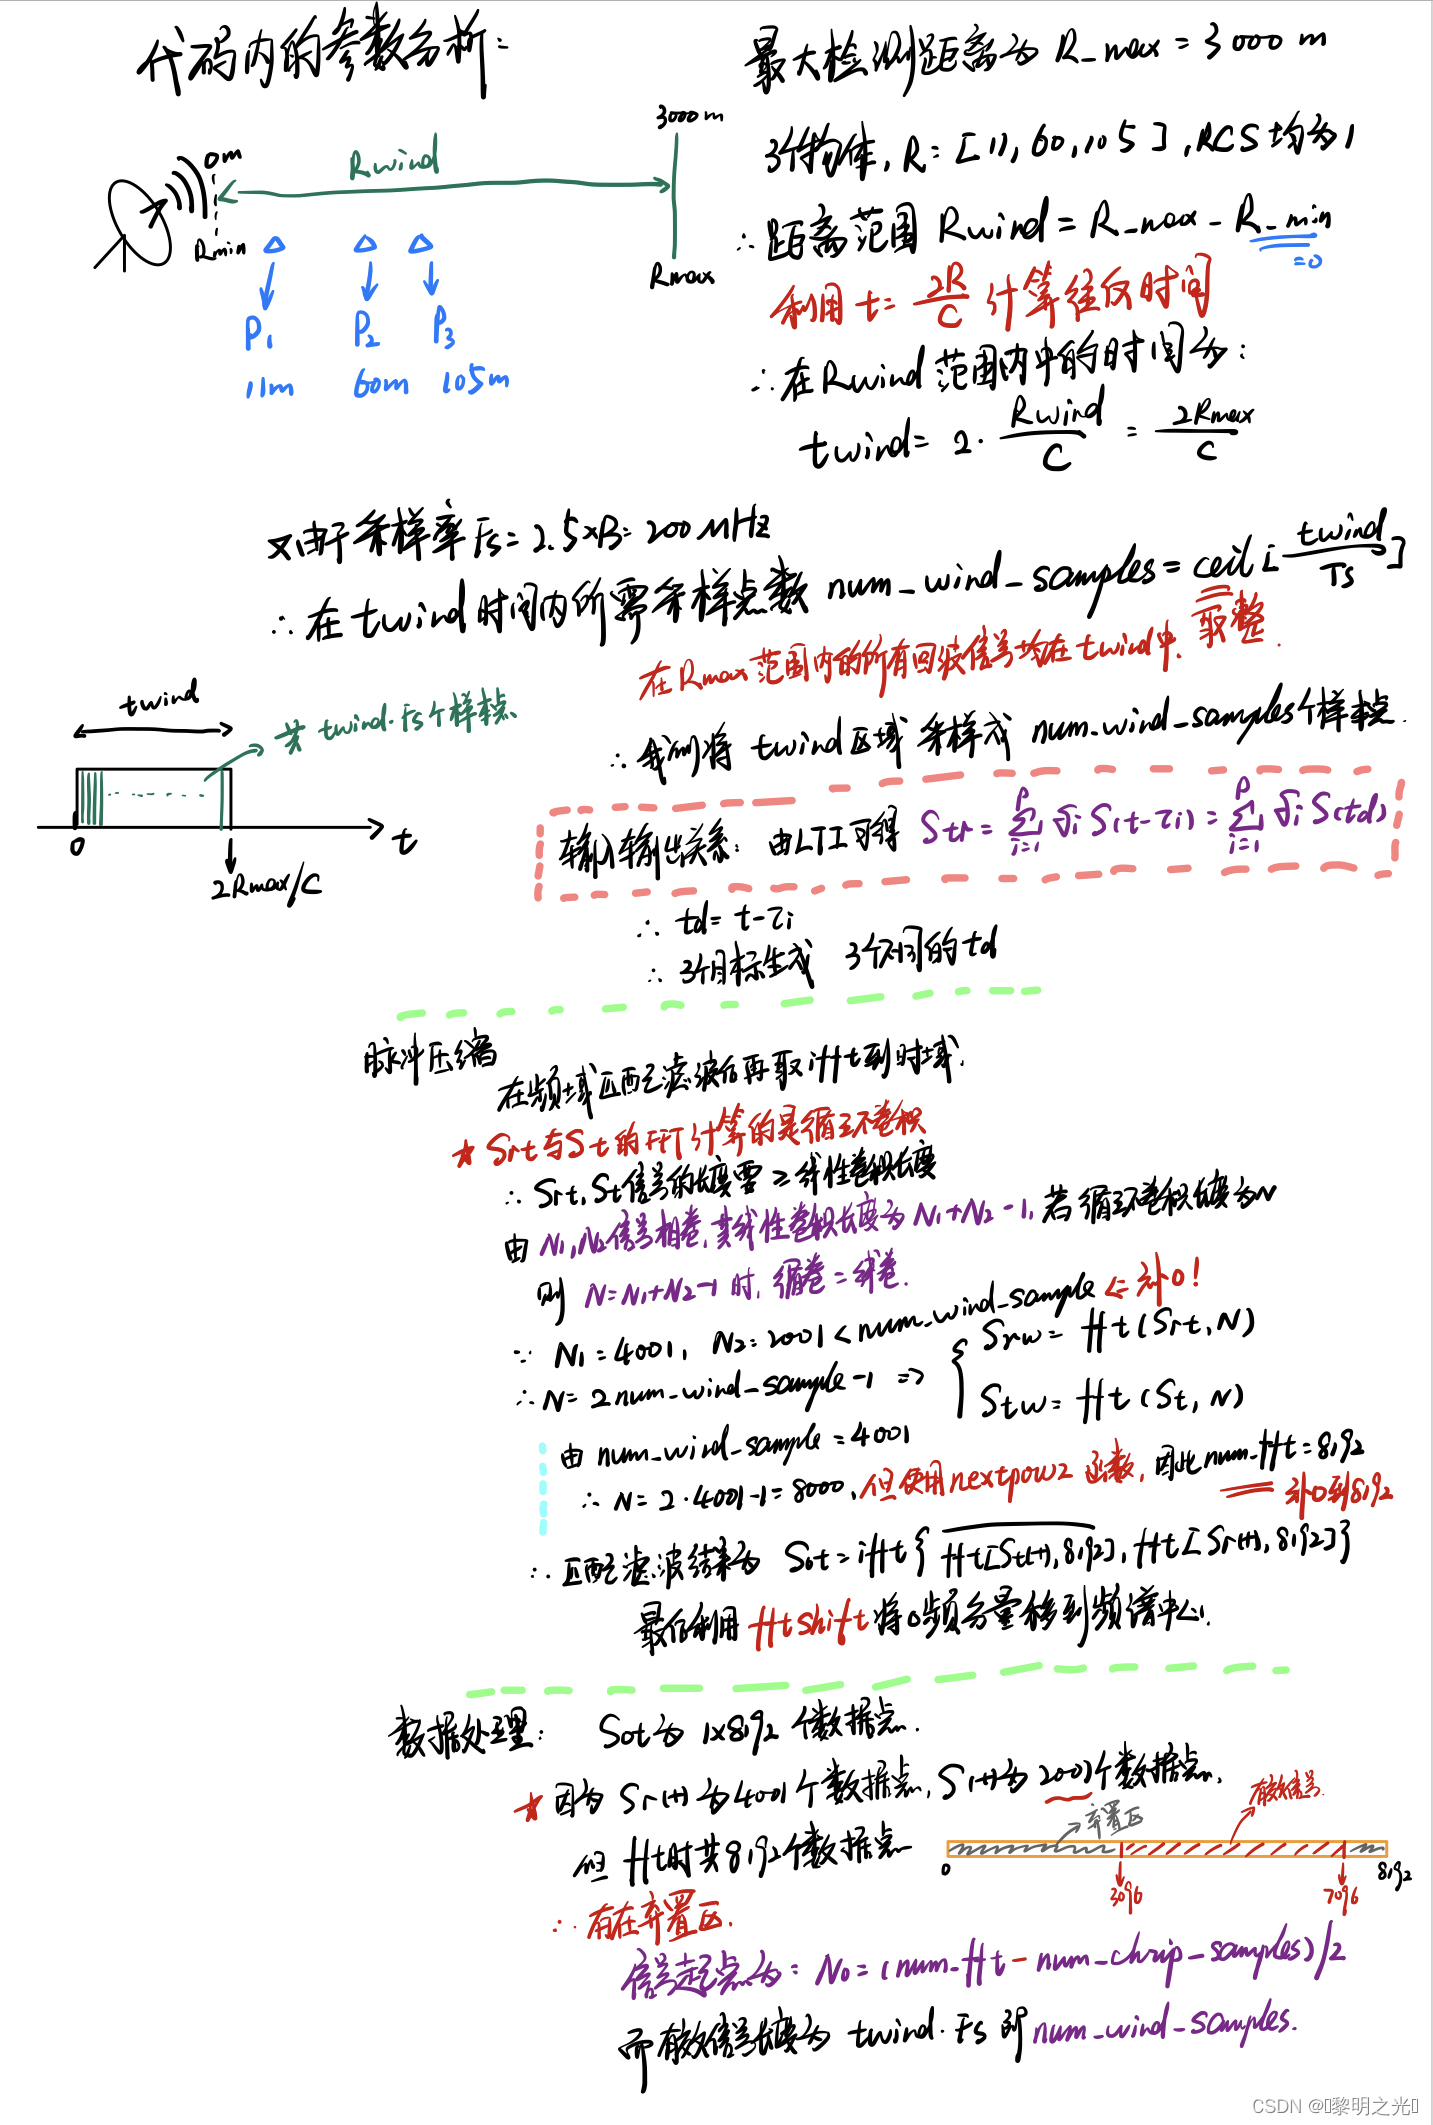 代码内的参数分析:
最大检测距离为 R_max = 3000 m
3个物体, R: [11, 60, 105], RCS均为1
∴ 距离范围 Rwind = R_max - R_min
=0
利用 t = 2R/C 计算往返时间
∴ 在Rwind范围内中的时间为:
twind = 2 · Rwind/C = 2Rmax/C
0m
Rmin
Rwind
3000m
Rmax
P1
P2
P3
11m
60m
105m
又由于采样率 Fs = 2.5×B = 200MHz
∴ 在twind时间内所需采样点数 num_wind_samples = ceil[twind/Ts]
取整.
在Rmax范围内的所有回波信号均在twind中.
∴ 我们将 twind区域 采样成 num_wind_samples个样本点.
twind
共 twind·Fs个样本点.
0
t
2Rmax/C
输入输出关系: 由LTI可得 Str = Σ(i=1→P) σi S(t-τi) = Σ(i=1→P) σi S(td)
∴ td = t-τi
∴ 3个目标生成 3个不同的td
脉冲压缩
在频域匹配滤波后再取ifft到时域.
★ Srt与St的FFT计算的是循环卷积
∴ Srt, St信号的长度需 ≥ 线性卷积长度
由 N1, N2信号相卷, 其线性卷积长度为 N1+N2-1, 若循环卷积长度为N
则 N=N1+N2-1 时, 循卷=线卷.
∵ N1 = 4001, N2 = 2001 < num_wind_sample ⇐ 补0!
∴ N = 2num_wind_sample-1 ⇒ { Srw = fft(Srt, N)
Stw = fft(St, N)
由 num_wind_sample = 4001
∴ N = 2·4001-1 = 8000, 但使用nextpow2 函数, 因此num_fft = 8192
补0到8192
∴ 匹配滤波结果为 Sot = ifft{ fft[St(t), 8192], fft[Sr(t), 8192] }
最后利用 fftshift 将0频分量移到频谱中心.
数据处理: Sot为 1×8192 个数据点.
★ 因为 Sr(t) 为4001个数据点, S(t)为2001个数据点,
但 fft时共8192个数据点
∴ 存在弃置区.
弃置区
有效信号.
0
3096
7096
8192
信号起点为: N0 = (num_fft - num_chrip_samples)/2
而有效信号长度为 twind·Fs 即num_wind_samples.
CSDN @黎明之光